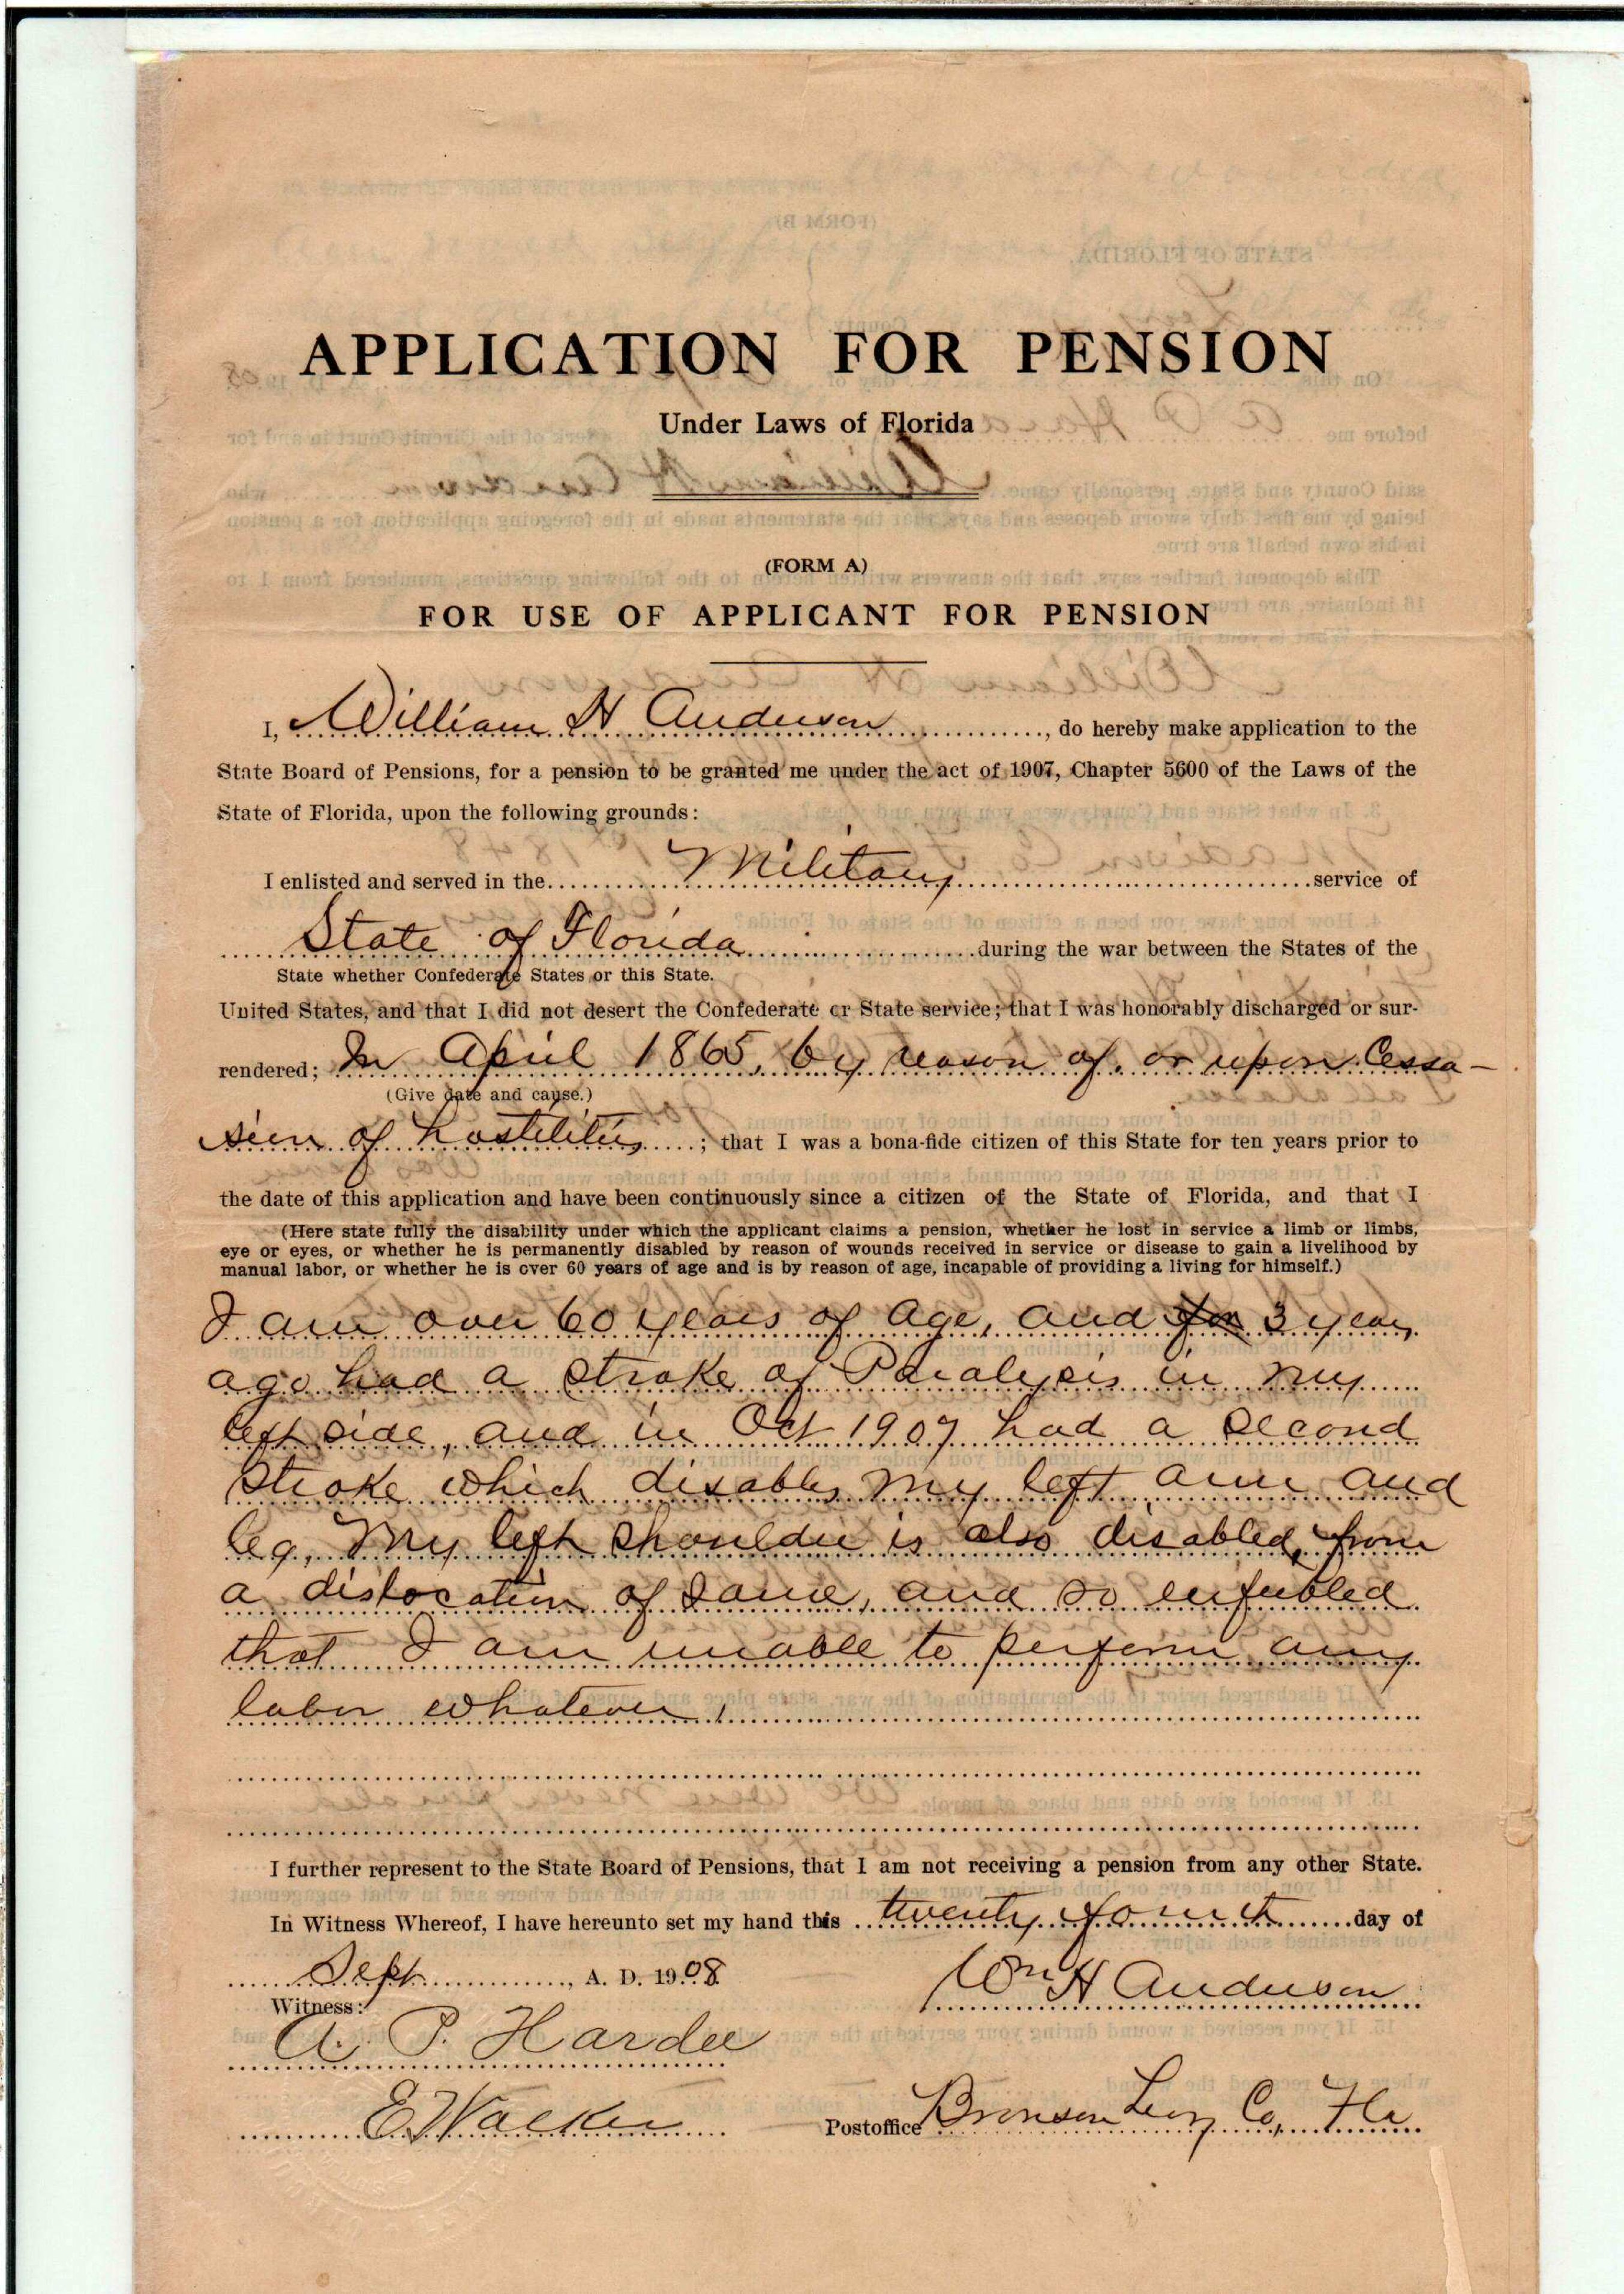 APPLICATION FOR PENSION
Under Laws of Florida
(FORM A)
FOR USE OF APPLICANT FOR PENSION
I, William H Anderson, do hereby make application to the
State Board of Pensions, for a pension to be granted me under the act of 1907, Chapter 5600 of the Laws of the
State of Florida, upon the following grounds:
I enlisted and served in the Military service of
State of Florida during the war between the States of the
State whether Confederate States or this State.
United States, and that I did not desert the Confederate or State service; that I was honorably discharged or sur-
rendered; In April 1865, by reason of, or upon Cessa-
(Give date and cause.)
sion of hostilities; that I was a bona-fide citizen of this State for ten years prior to
the date of this application and have been continuously since a citizen of the State of Florida, and that I
(Here state fully the disability under which the applicant claims a pension, whether he lost in service a limb or limbs,
eye or eyes, or whether he is permanently disabled by reason of wounds received in service or disease to gain a livelihood by
manual labor, or whether he is over 60 years of age and is by reason of age, incapable of providing a living for himself.)
I am over 60 years of age, and 3 years
ago had a stroke of Paralysis in my
left side, and in Oct 1907 had a second
stroke which disables my left arm and
leg, My left shoulder is also disabled, from
a dislocation of same, and so enfeebled
that I am unable to perform any
labor whatever,
I further represent to the State Board of Pensions, that I am not receiving a pension from any other State.
In Witness Whereof, I have hereunto set my hand this twenty fourth day of
Sept, A. D. 1908
Wm H Anderson
Witness:
A. P. Hardee
E Walker
Postoffice Bronson Levy Co, Fla